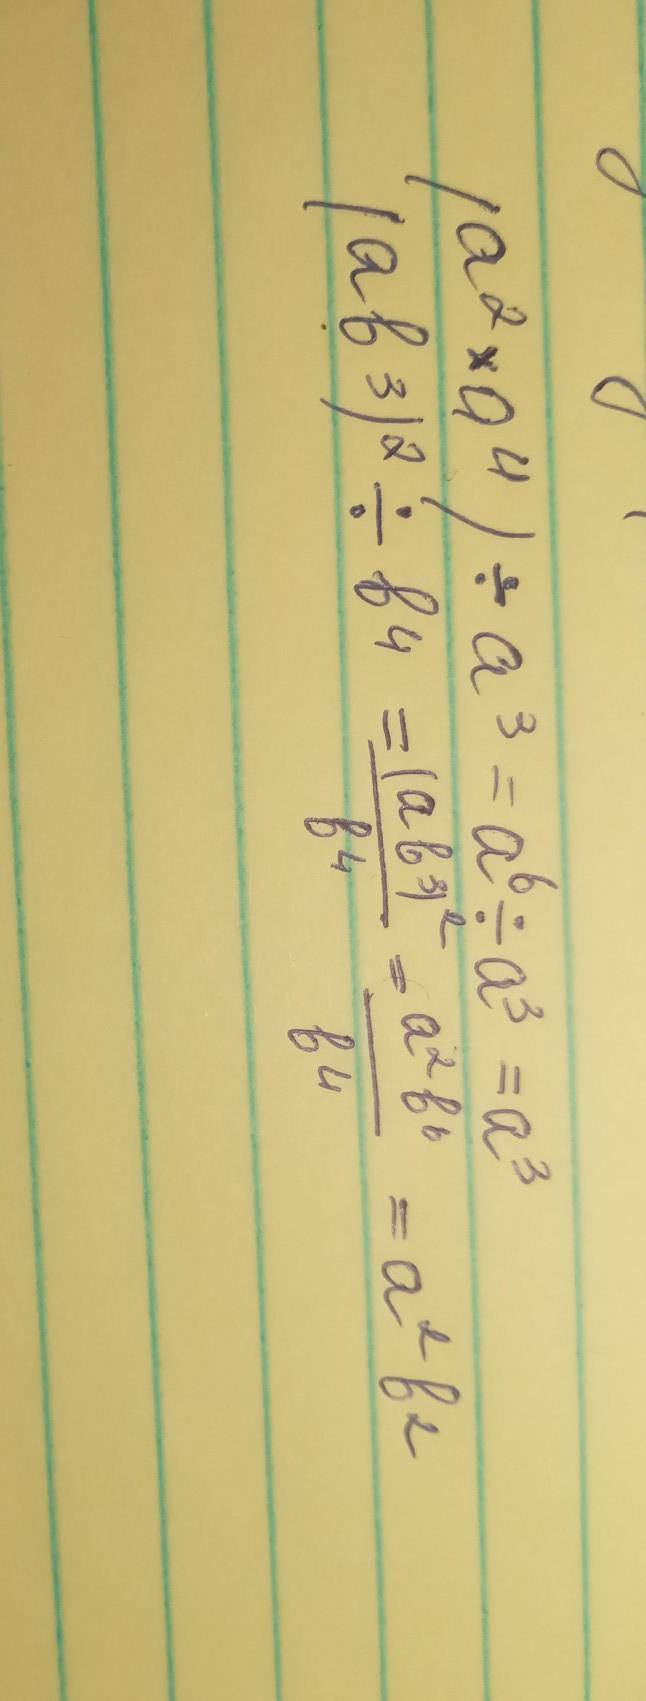 (a²×a⁴)÷a³=a⁶÷a³=a³
(ab³)²÷b⁴=(ab³)²/b⁴=a²b⁶/b⁴=a²b²